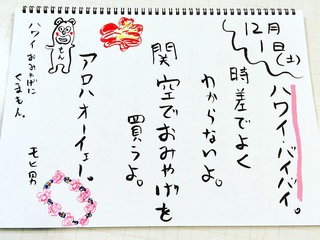 12月1日(土)
ハワイ・バイバイ。
時差でよく
わからないよ。
関空でおみやげを
買うよ。
アロハオーイェー。
モヒ男
くまもん
ハワイおみやげに
くまもん。